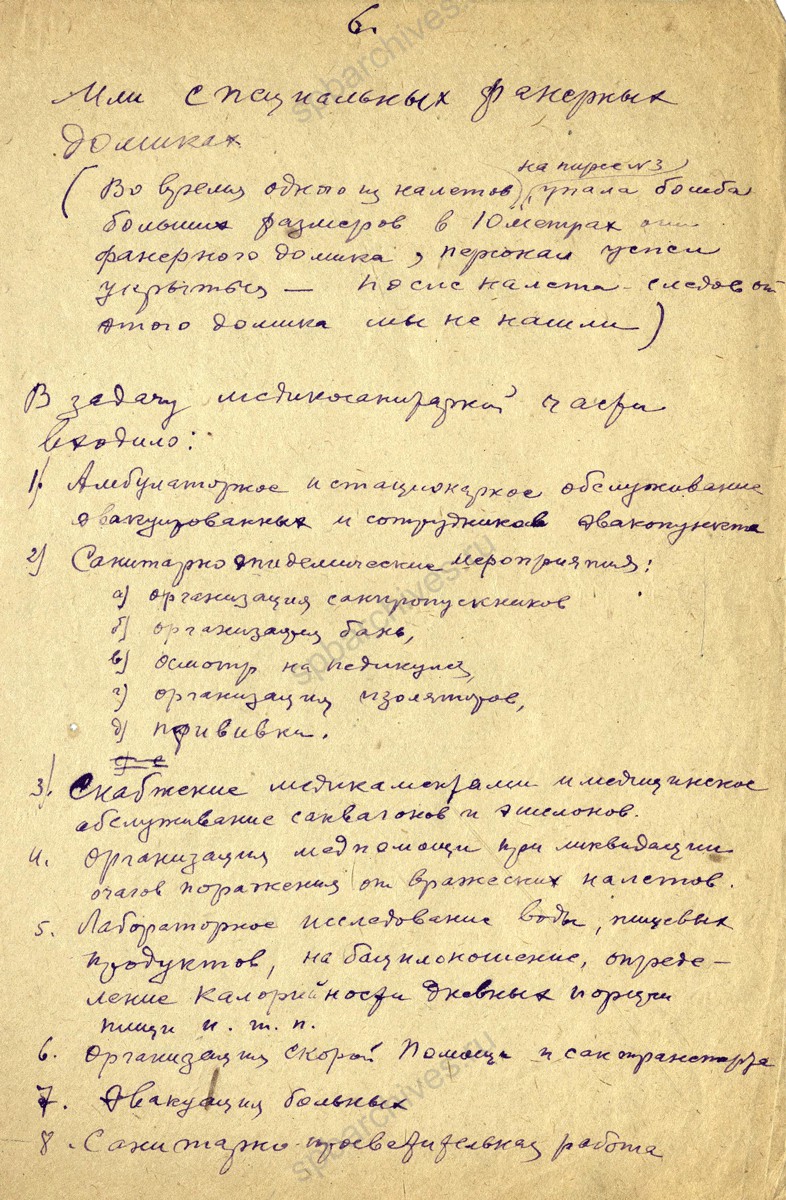 6.
Или специальных фанерных
домиках
на пирсе №3
(Во время одного из налетов упала бомба
больших размеров в 10 метрах от
фанерного домика, персонал успел
укрыться — после налета следов от
этого домика мы не нашли)
В задачу медикосанитарной части
входило:
1). Амбулаторное и стационарное обслуживание
эвакуированных и сотрудников эвакопункта
2) Санитарно эпидемические мероприятия:
а) организация санпропускников
б) организация бань,
в) осмотр на педикулез,
г) организация изоляторов,
д) прививки.
3). Снабжение медикаментами и медицинское
обслуживание санвагонов и эшелонов.
4. Организация медпомощи при ликвидации
очагов поражения от вражеских налетов.
5. Лабораторное исследование воды, пищевых
продуктов, на бацилоношение, опреде-
ление калорийности дневных порций
пищи и. т. п.
6. Организация скорой помощи и сантранспорта
7. Эвакуация больных
8. Санитарно-просветительная работа
spbarchives.ru
spbarchives.ru
spbarchives.ru